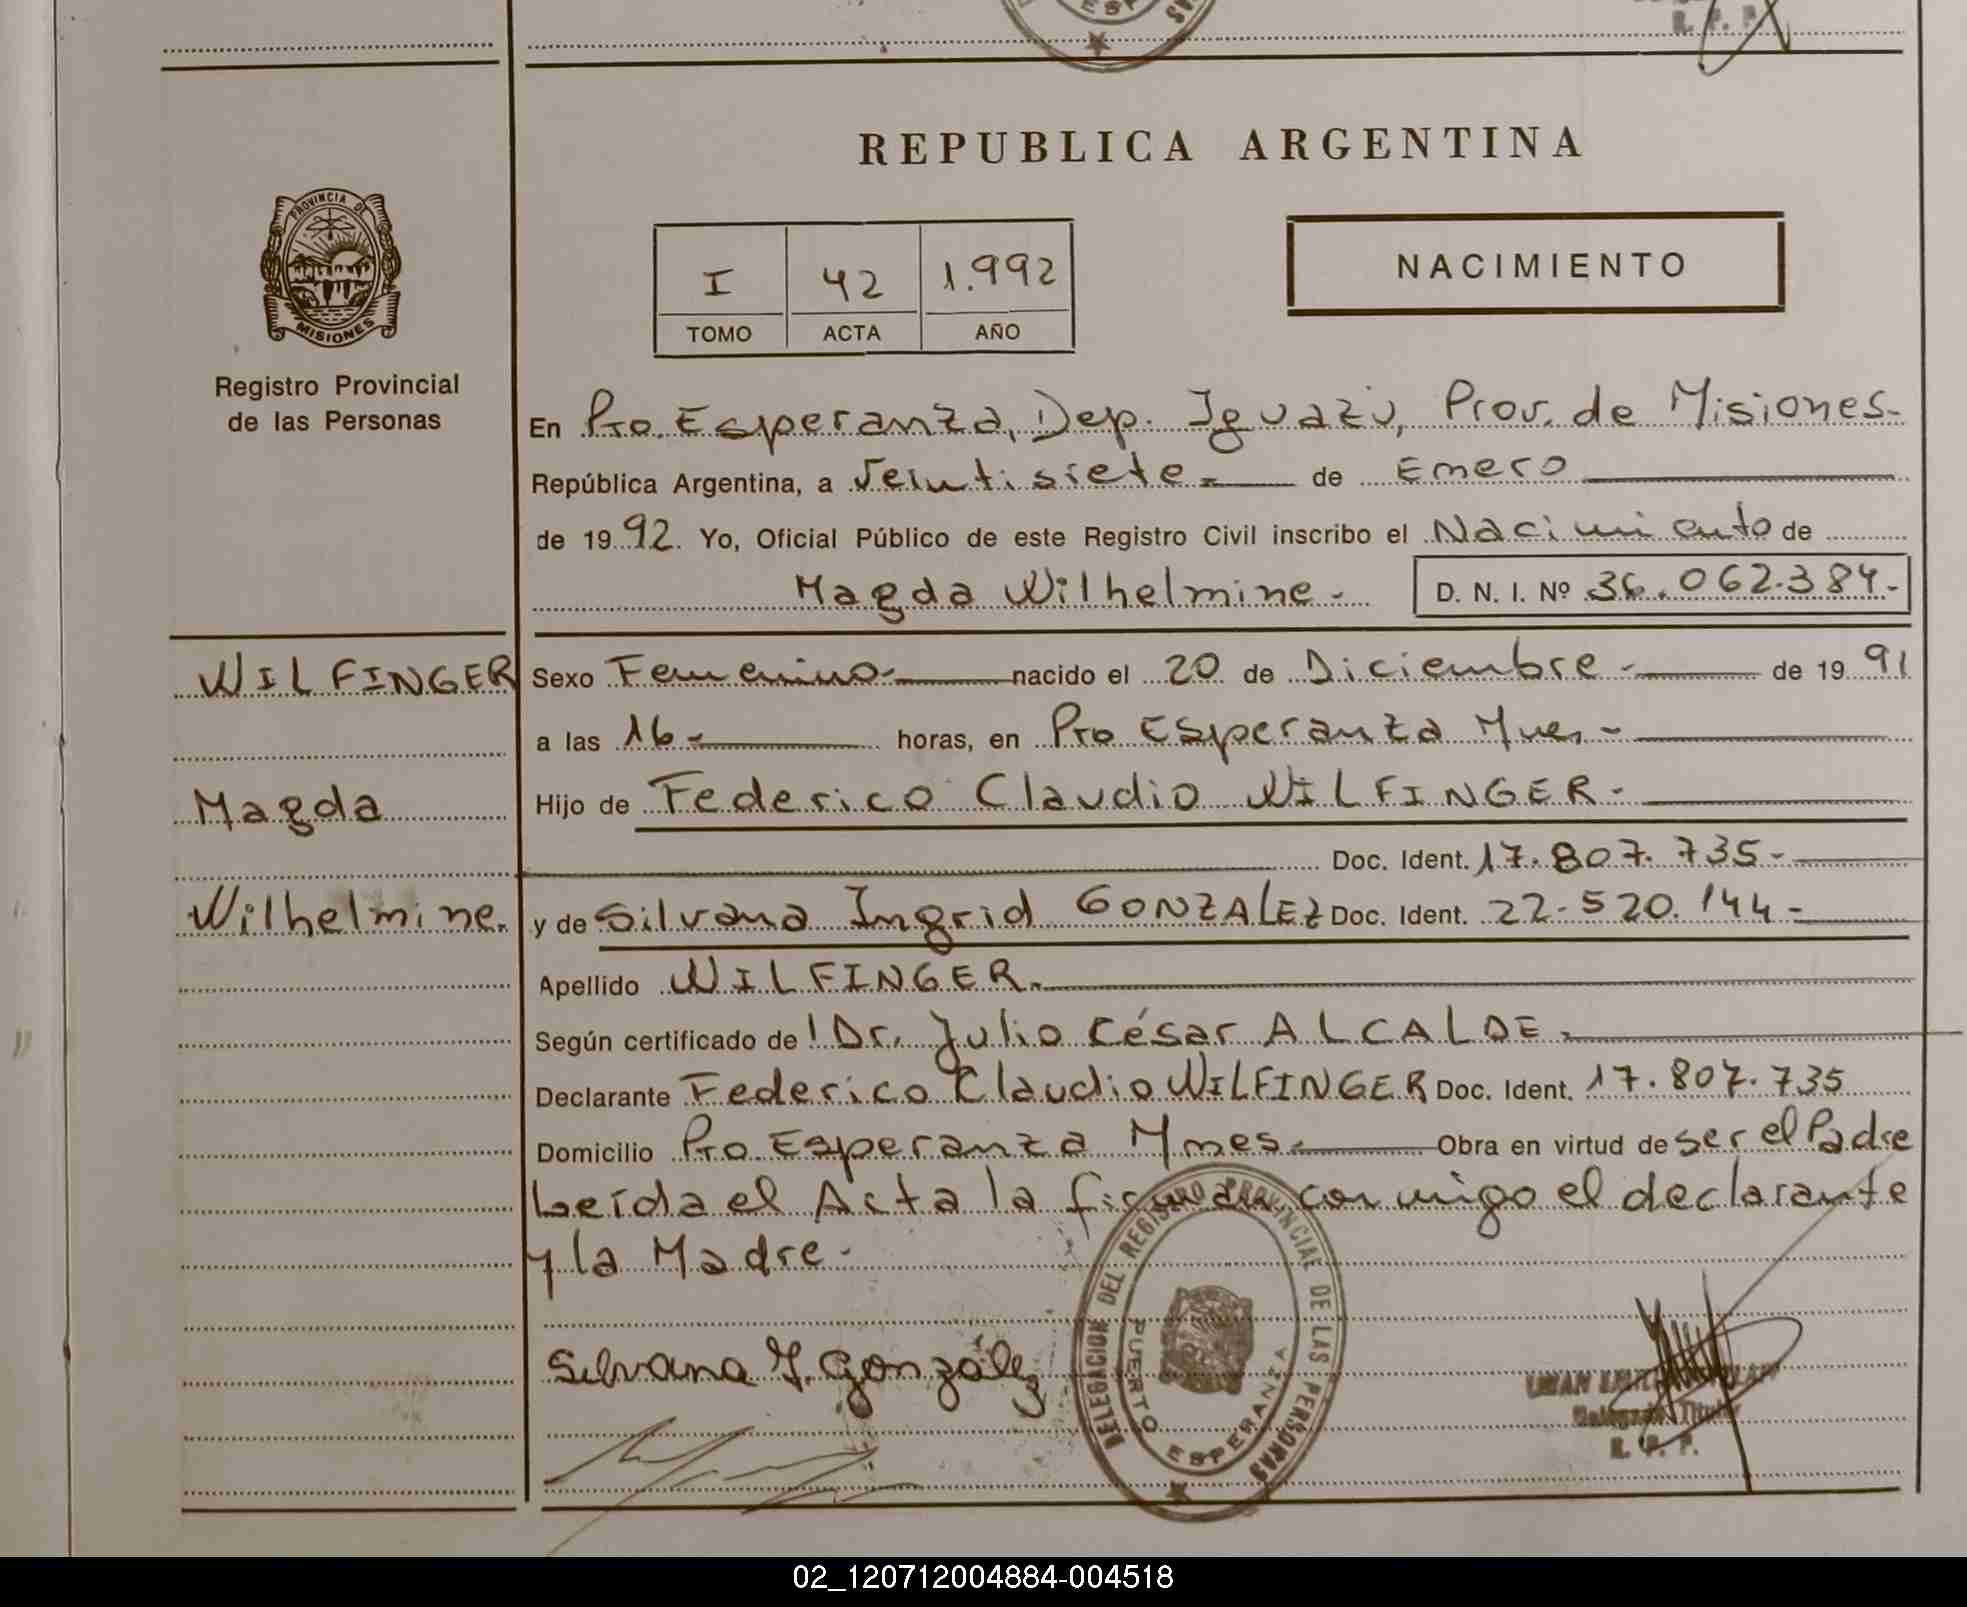 R. P. P.
REPUBLICA ARGENTINA
PROVINCIA DE
MISIONES
Registro Provincial
de las Personas
I 42 1.992
TOMO ACTA AÑO
NACIMIENTO
En Pto. Esperanza, Dep. Iguazú, Prov. de Misiones-
República Argentina, a Veintisiete - de Enero
de 1992. Yo, Oficial Público de este Registro Civil inscribo el Nacimiento de
Magda Wilhelmine - D. N. I. Nº 36.062.384.-
WILFINGER
Magda
Wilhelmine.
Sexo Femenino- nacido el 20 de Diciembre - de 1991
a las 16- horas, en Pto Esperanza Mnes -
Hijo de Federico Claudio WILFINGER -
Doc. Ident. 17.807.735-
y de Silvana Ingrid GONZALEZ Doc. Ident. 22.520.144-
Apellido WILFINGER.
Según certificado de l Dr. Julio César ALCALDE.
Declarante Federico Claudio WILFINGER Doc. Ident. 17.807.735
Domicilio Pto. Esperanza Mnes - Obra en virtud de ser el Padre
Leída el Acta la firman conmigo el declarante
y la Madre -
Silvana I. González
DELEGACION DEL REGISTRO PROVINCIAL DE LAS PERSONAS
PUERTO ESPERANZA
Delegado Titular
R. P. P.
02_120712004884-004518